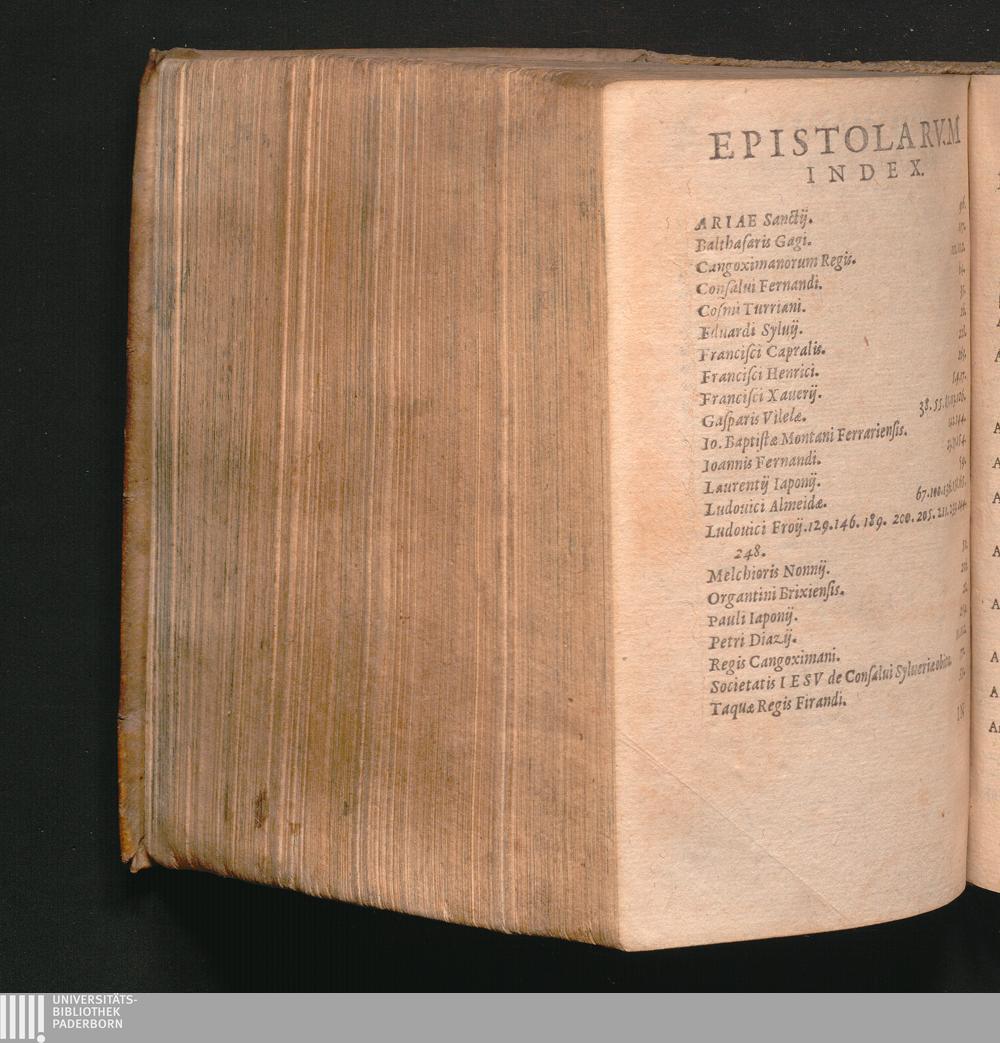 EPISTOLARVM
INDEX.
ARIAE Sanctij.
Balthaſaris Gagi.
Cangoximanorum Regis.
Conſalui Fernandi.
Coſmi Turriani.
Eduardi Syluij.
Franciſci Capralis.
Franciſci Henrici.
Franciſci Xauerij.
Gaſparis Vilelæ. 38. 55.
Io. Baptiſtæ Montani Ferrarienſis.
Ioannis Fernandi.
Laurentij Iaponij.
Ludouici Almeidæ. 67. 100.
Ludouici Froij. 129. 146. 189. 200. 205. 211.
248.
Melchioris Nonnij.
Organtini Brixienſis.
Pauli Iaponij.
Petri Diazij.
Regis Cangoximani.
Societatis IESV de Conſalui Sylueriæ obitu.
Taquæ Regis Firandi.
IN
UNIVERSITÄTS-
BIBLIOTHEK
PADERBORN